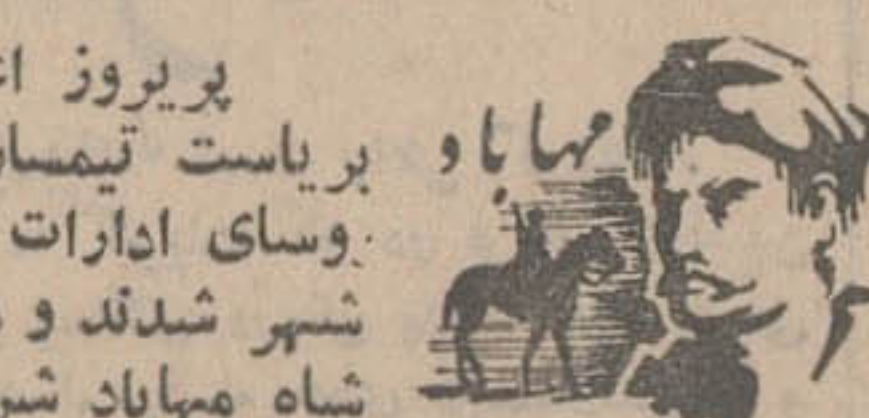 مهاباد
پریروز
بریاست تیمسار
روسای ادارات
شهر شدند و
شاه مهاباد